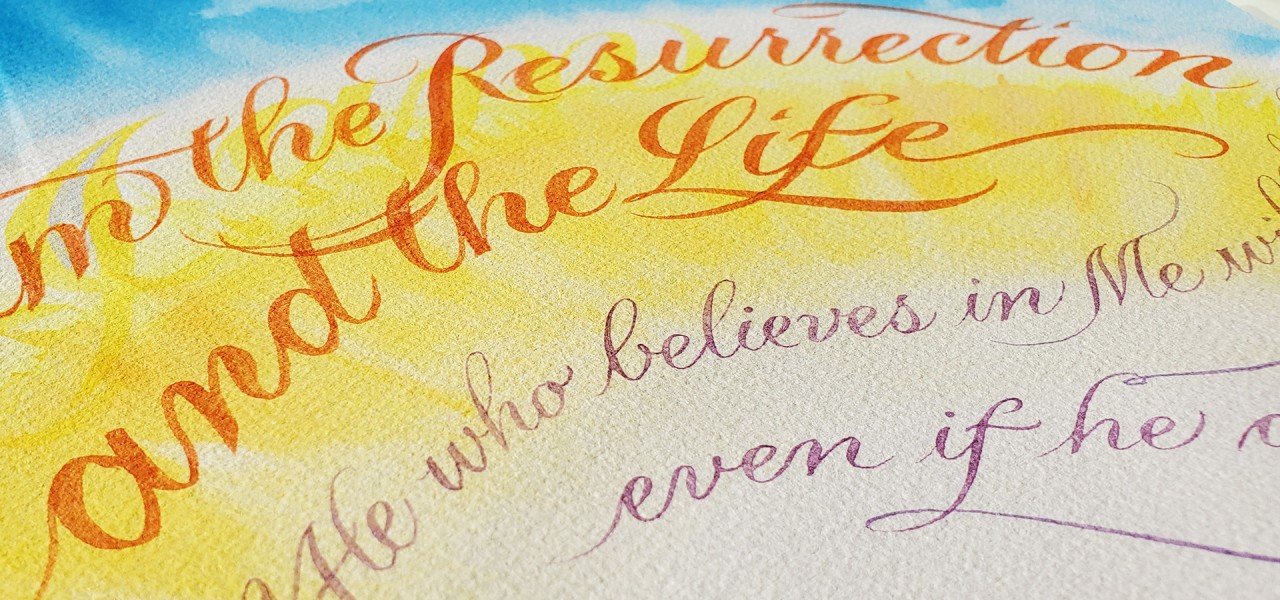 m the Resurrection
and the Life
He who believes in Me
even if he